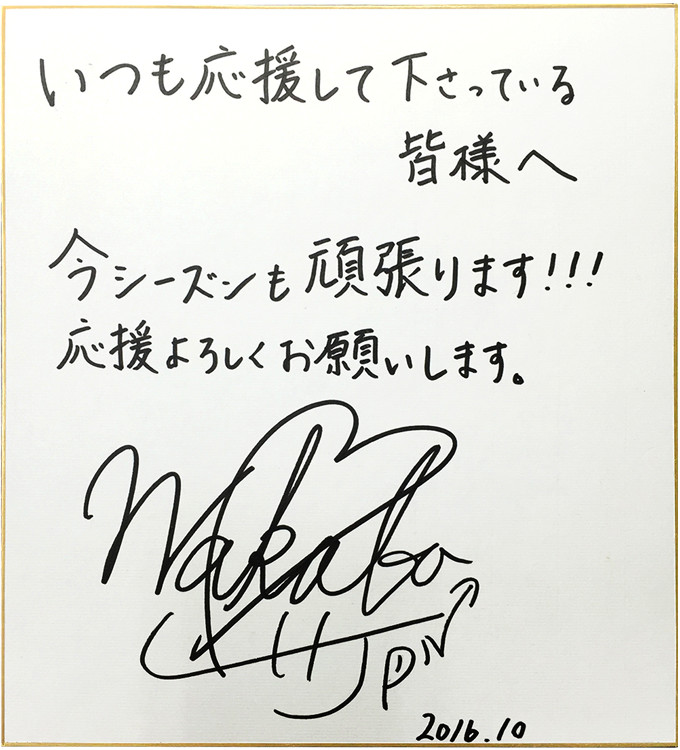 いつも応援して下さっている
皆様へ
今シーズンも頑張ります!!!
応援よろしくお願いします。
Wakaba
2016.10